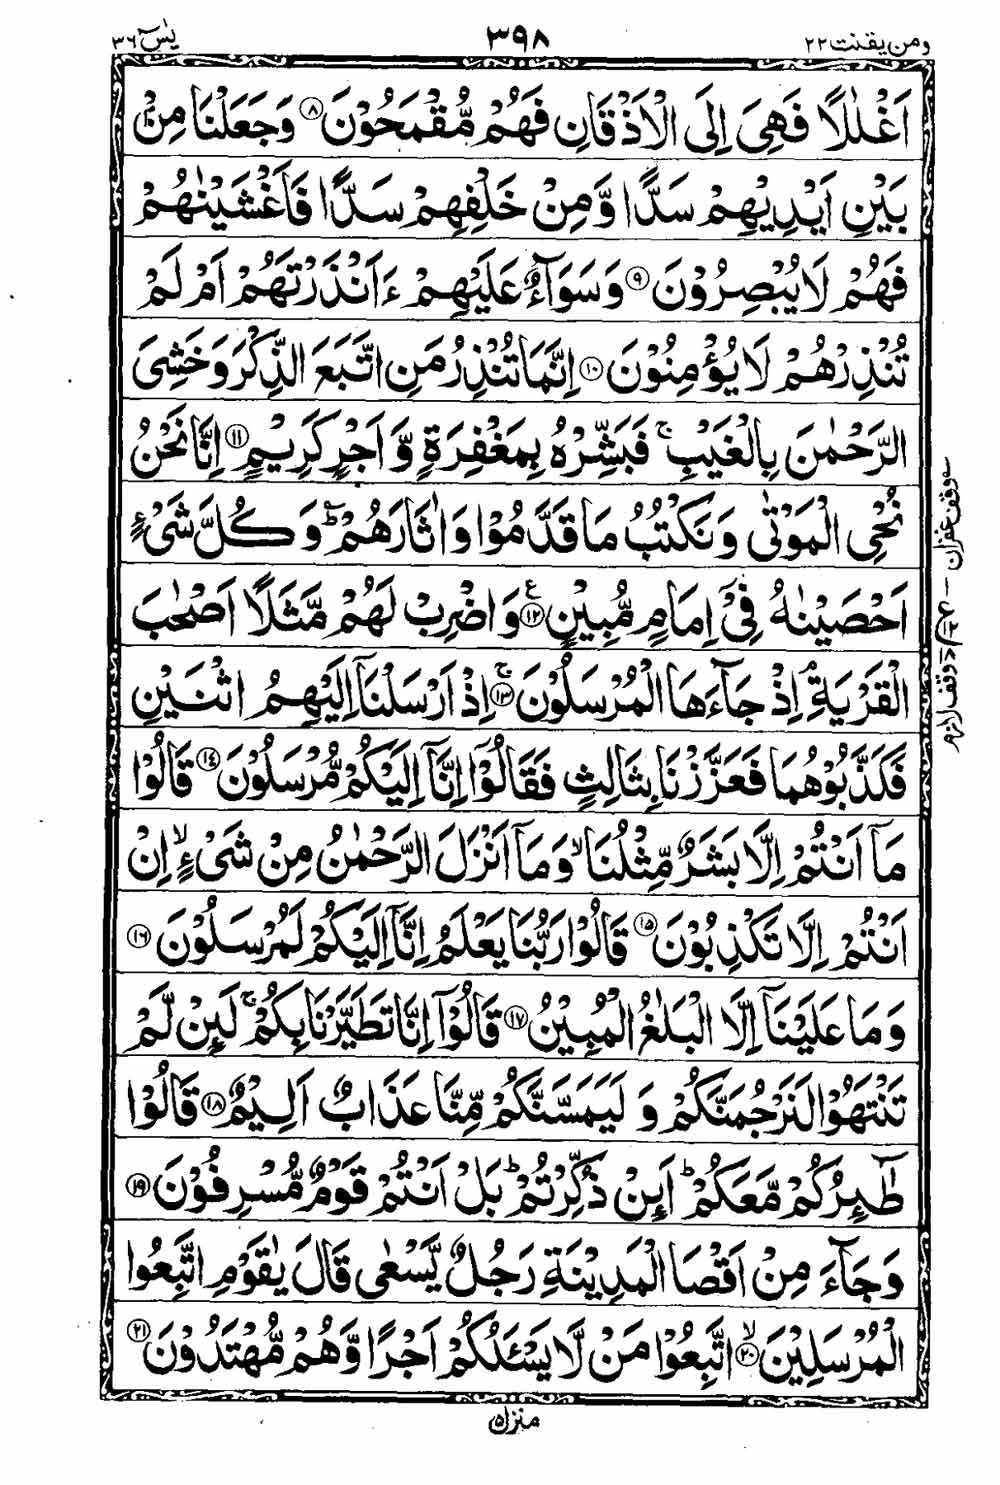 ومن یقنت ۲۲ ۳۹۸ یٰسٓ ۳۶
اَغْلٰلًا فَهِىَ اِلَى الْاَذْقَانِ فَهُمْ مُّقْمَحُوْنَ ۝۸ وَجَعَلْنَا مِنْۢ
بَيْنِ اَيْدِيْهِمْ سَدًّا وَّمِنْ خَلْفِهِمْ سَدًّا فَاَغْشَيْنٰهُمْ
فَهُمْ لَا يُبْصِرُوْنَ ۝۹ وَسَوَآءٌ عَلَيْهِمْ ءَاَنْذَرْتَهُمْ اَمْ لَمْ
تُنْذِرْهُمْ لَا يُؤْمِنُوْنَ ۝۱۰ اِنَّمَا تُنْذِرُ مَنِ اتَّبَعَ الذِّكْرَ وَخَشِىَ
الرَّحْمٰنَ بِالْغَيْبِ ۚ فَبَشِّرْهُ بِمَغْفِرَةٍ وَّاَجْرٍ كَرِيْمٍ ۝۱۱ اِنَّا نَحْنُ
نُحْىِ الْمَوْتٰى وَنَكْتُبُ مَا قَدَّمُوْا وَاٰثَارَهُمْ ؕ وَكُلَّ شَىْءٍ
اَحْصَيْنٰهُ فِىْٓ اِمَامٍ مُّبِيْنٍ ۝۱۲ ع وَاضْرِبْ لَهُمْ مَّثَلًا اَصْحٰبَ
الْقَرْيَةِ ۘ اِذْ جَآءَهَا الْمُرْسَلُوْنَ ۝۱۳ ۚ اِذْ اَرْسَلْنَاۤ اِلَيْهِمُ اثْنَيْنِ
فَكَذَّبُوْهُمَا فَعَزَّزْنَا بِثَالِثٍ فَقَالُوْۤا اِنَّاۤ اِلَيْكُمْ مُّرْسَلُوْنَ ۝۱۴ قَالُوْا
مَاۤ اَنْتُمْ اِلَّا بَشَرٌ مِّثْلُنَا ۙ وَمَاۤ اَنْزَلَ الرَّحْمٰنُ مِنْ شَىْءٍ ۙ اِنْ
اَنْتُمْ اِلَّا تَكْذِبُوْنَ ۝۱۵ قَالُوْا رَبُّنَا يَعْلَمُ اِنَّاۤ اِلَيْكُمْ لَمُرْسَلُوْنَ ۝۱۶
وَمَا عَلَيْنَاۤ اِلَّا الْبَلٰغُ الْمُبِيْنُ ۝۱۷ قَالُوْۤا اِنَّا تَطَيَّرْنَا بِكُمْ ۚ لَئِنْ لَّمْ
تَنْتَهُوْا لَنَرْجُمَنَّكُمْ وَلَيَمَسَّنَّكُمْ مِّنَّا عَذَابٌ اَلِيْمٌ ۝۱۸ قَالُوْا
طَآئِرُكُمْ مَّعَكُمْ ؕ اَئِنْ ذُكِّرْتُمْ ؕ بَلْ اَنْتُمْ قَوْمٌ مُّسْرِفُوْنَ ۝۱۹
وَجَآءَ مِنْ اَقْصَا الْمَدِيْنَةِ رَجُلٌ يَّسْعٰى قَالَ يٰقَوْمِ اتَّبِعُوا
الْمُرْسَلِيْنَ ۝۲۰ ۙ اتَّبِعُوْا مَنْ لَّا يَسْئَلُكُمْ اَجْرًا وَّهُمْ مُّهْتَدُوْنَ ۝۲۱
وقف غفران
وقف لازم
منزل ۵